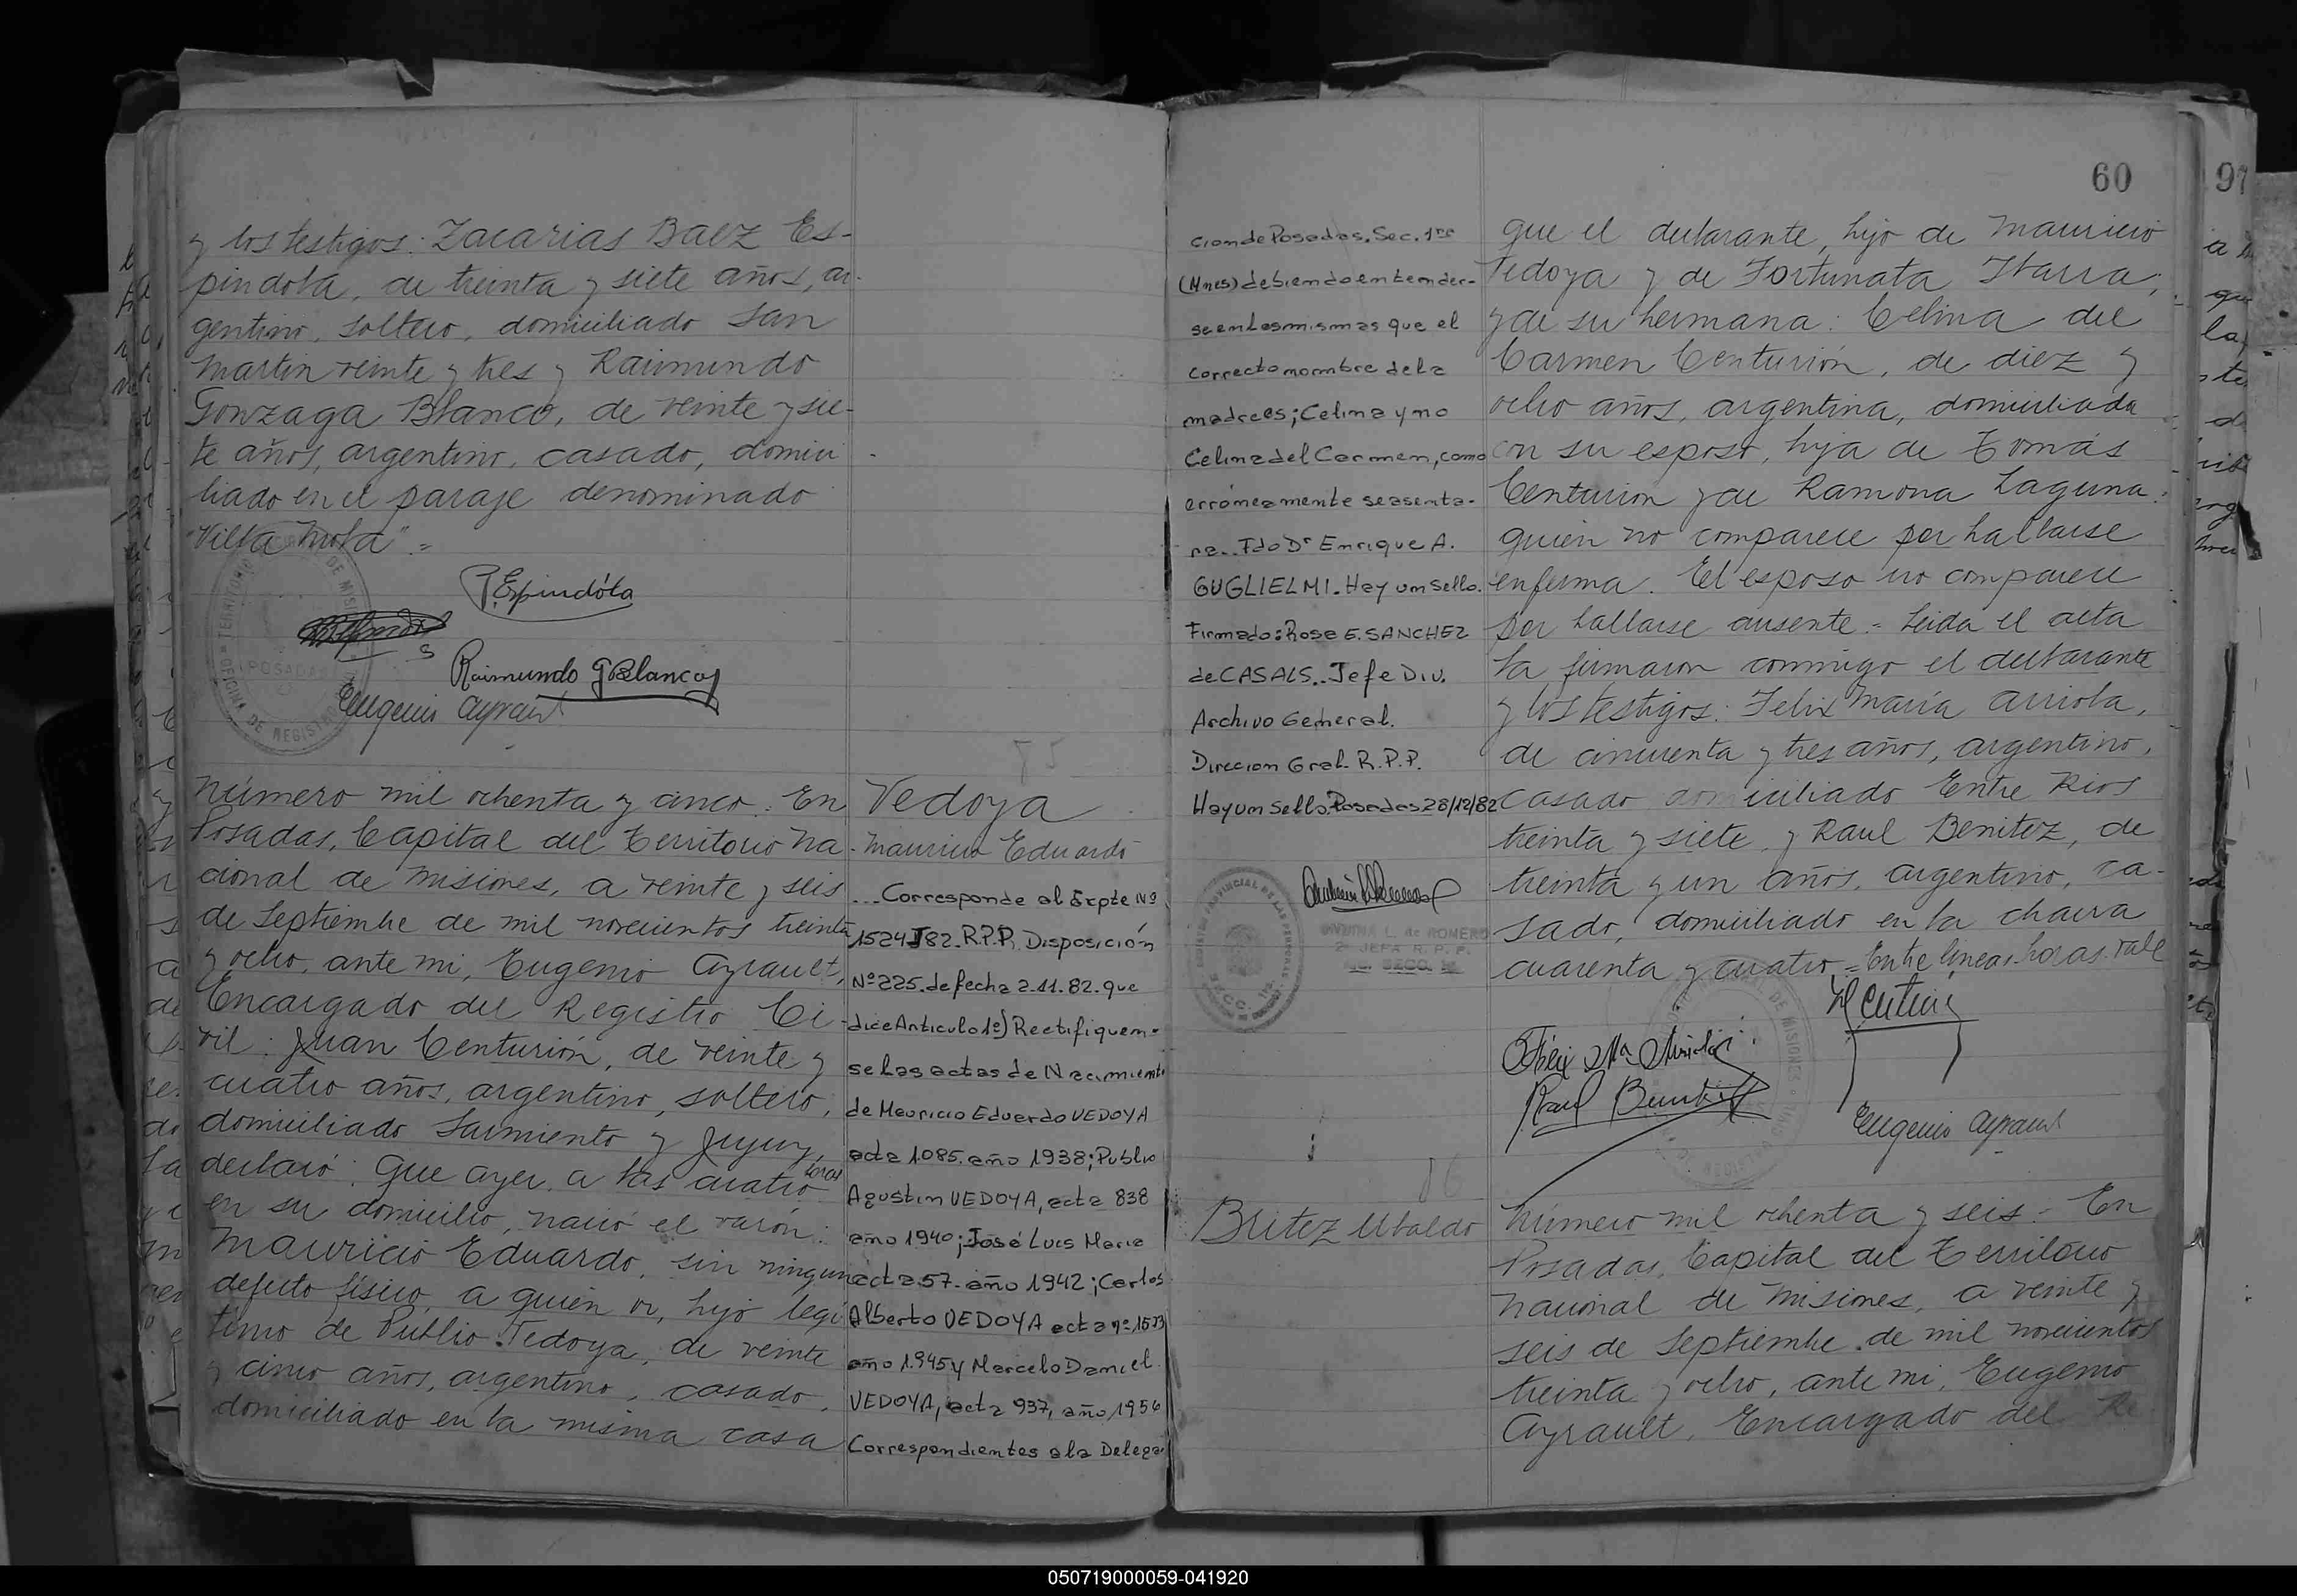 y los testigos: Zacarias Baez Es-
pindola, de treinta y siete años, ar-
gentino, soltero, domiciliado San
Martin veinte y tres y Raimundo
Gonzaga Blanco, de veinte y sie-
te años, argentino, casado, domici
liado en el paraje denominado
"Villa Mola".=
Z. Espindóla
Raimundo G Blanco
Eugenio Ayrault
85
Número mil ochenta y cinco: En
Posadas, Capital del Territorio Na-
cional de Misiones, a veinte y seis
de Septiembre de mil novecientos treinta
y ocho, ante mi, Eugenio Ayrault,
Encargado del Registro Ci-
vil: Juan Centurión, de veinte y
cuatro años, argentino, soltero,
domiciliado Sarmiento y Jujuy,
declaró: Que ayer, a las cuatro horas
en su domicilio, nació el varón:
Mauricio Eduardo, sin ningun
defecto físico, a quien vi, hijo legi
timo de Publio Vedoya, de veinte
y cinco años, argentino, casado,
domiciliado en la misma casa
Vedoya
Mauricio Eduardo
...Corresponde al Expte Nº
1524 J 82. R.P.P. Disposición
Nº 225. de fecha 2.11.82. que
dice Articulo 1º) Rectifiquen-
se las actas de Nacimiento
de Mauricio Eduardo VEDOYA
acta 1085. año 1938; Publio
Agustin VEDOYA, acta 838
año 1940; José Luis Maria
acta 57. año 1942; Carlos
Alberto VEDOYA acta nº 1573
año 1.945 y Marcelo Daniel
VEDOYA, acta 937, año 1956
Correspondientes a la Delega
60
97
cion de Posadas. Sec. 1ra
(Mnes) debiendo entender-
se en las mismas que el
correcto nombre de la
madre es; Celina y no
Celina del Carmen, como
erróneamente se asenta-
ra.. Fdo Dr Enrique A.
GUGLIELMI. Hay un sello.
Firmado: Rosa E. SANCHEZ
de CASALS.. Jefe Div.
Archivo General.
Direcion Gral. R.P.P.
Hay un sello. Posadas 28/12/82
L. de ROMERO
JEFA R. P. P.
que el declarante, hijo de Mauricio
Vedoya y de Fortunata Ibarra,
y de su hermana: Celina del
Carmen Centurión, de diez y
ocho años, argentina, domiciliada
con su esposo, hija de Tomás
Centurion y de Ramona Laguna.
quien no comparece por hallarse
enferma. El esposo no comparece
por hallarse ausente.= Leida el acta
la firmaron conmigo el declarante
y los testigos: Felix Maria Arriola,
de cincuenta y tres años, argentino,
casado domiciliado Entre Rios
treinta y siete, y Raul Benitez, de
treinta y un años, argentino, ca-
sado, domiciliado en la chacra
cuarenta y cuatro.= Entre lineas, horas. Vale
Félix Ma Arriola
Raul Benitez
Eugenio Ayrault
86
Britez Ubaldo
Número mil ochenta y seis.- En
Posadas, Capital del Territorio
Nacional de Misiones, a veinte y
seis de Septiembre de mil novecientos
treinta y ocho, ante mi, Eugenio
Ayrault, Encargado del Re
050719000059-041920